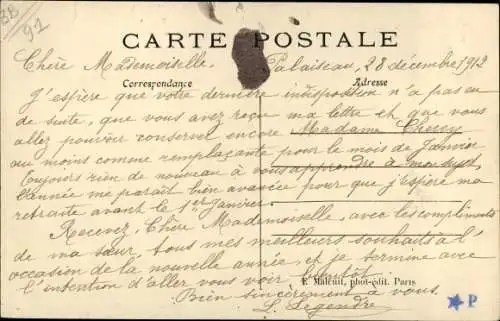 BB
91
CARTE POSTALE
Chère Mademoiselle, Palaiseau, 28 décembre 1912
Correspondance Adresse
J'espère que votre dernière indisposition n'a pas eu
de suite, que vous avez reçu ma lettre et que vous
allez pouvoir conserver encore Madame
au moins comme remplaçante pour le mois de Janvier
Toujours rien de nouveau à vous apprendre à mon sujet
L'année me paraît bien avancée pour que j'espère ma
retraite avant le 1er Janvier.
Recevez, Chère Mademoiselle, avec les compliments
de ma sœur, tous mes meilleurs souhaits à l'
occasion de la nouvelle année, et je termine avec
l'intention d'aller vous voir bientôt.
E. Malcuit, phot-édit. Paris
Bien sincèrement à vous.
L. Legendre
P